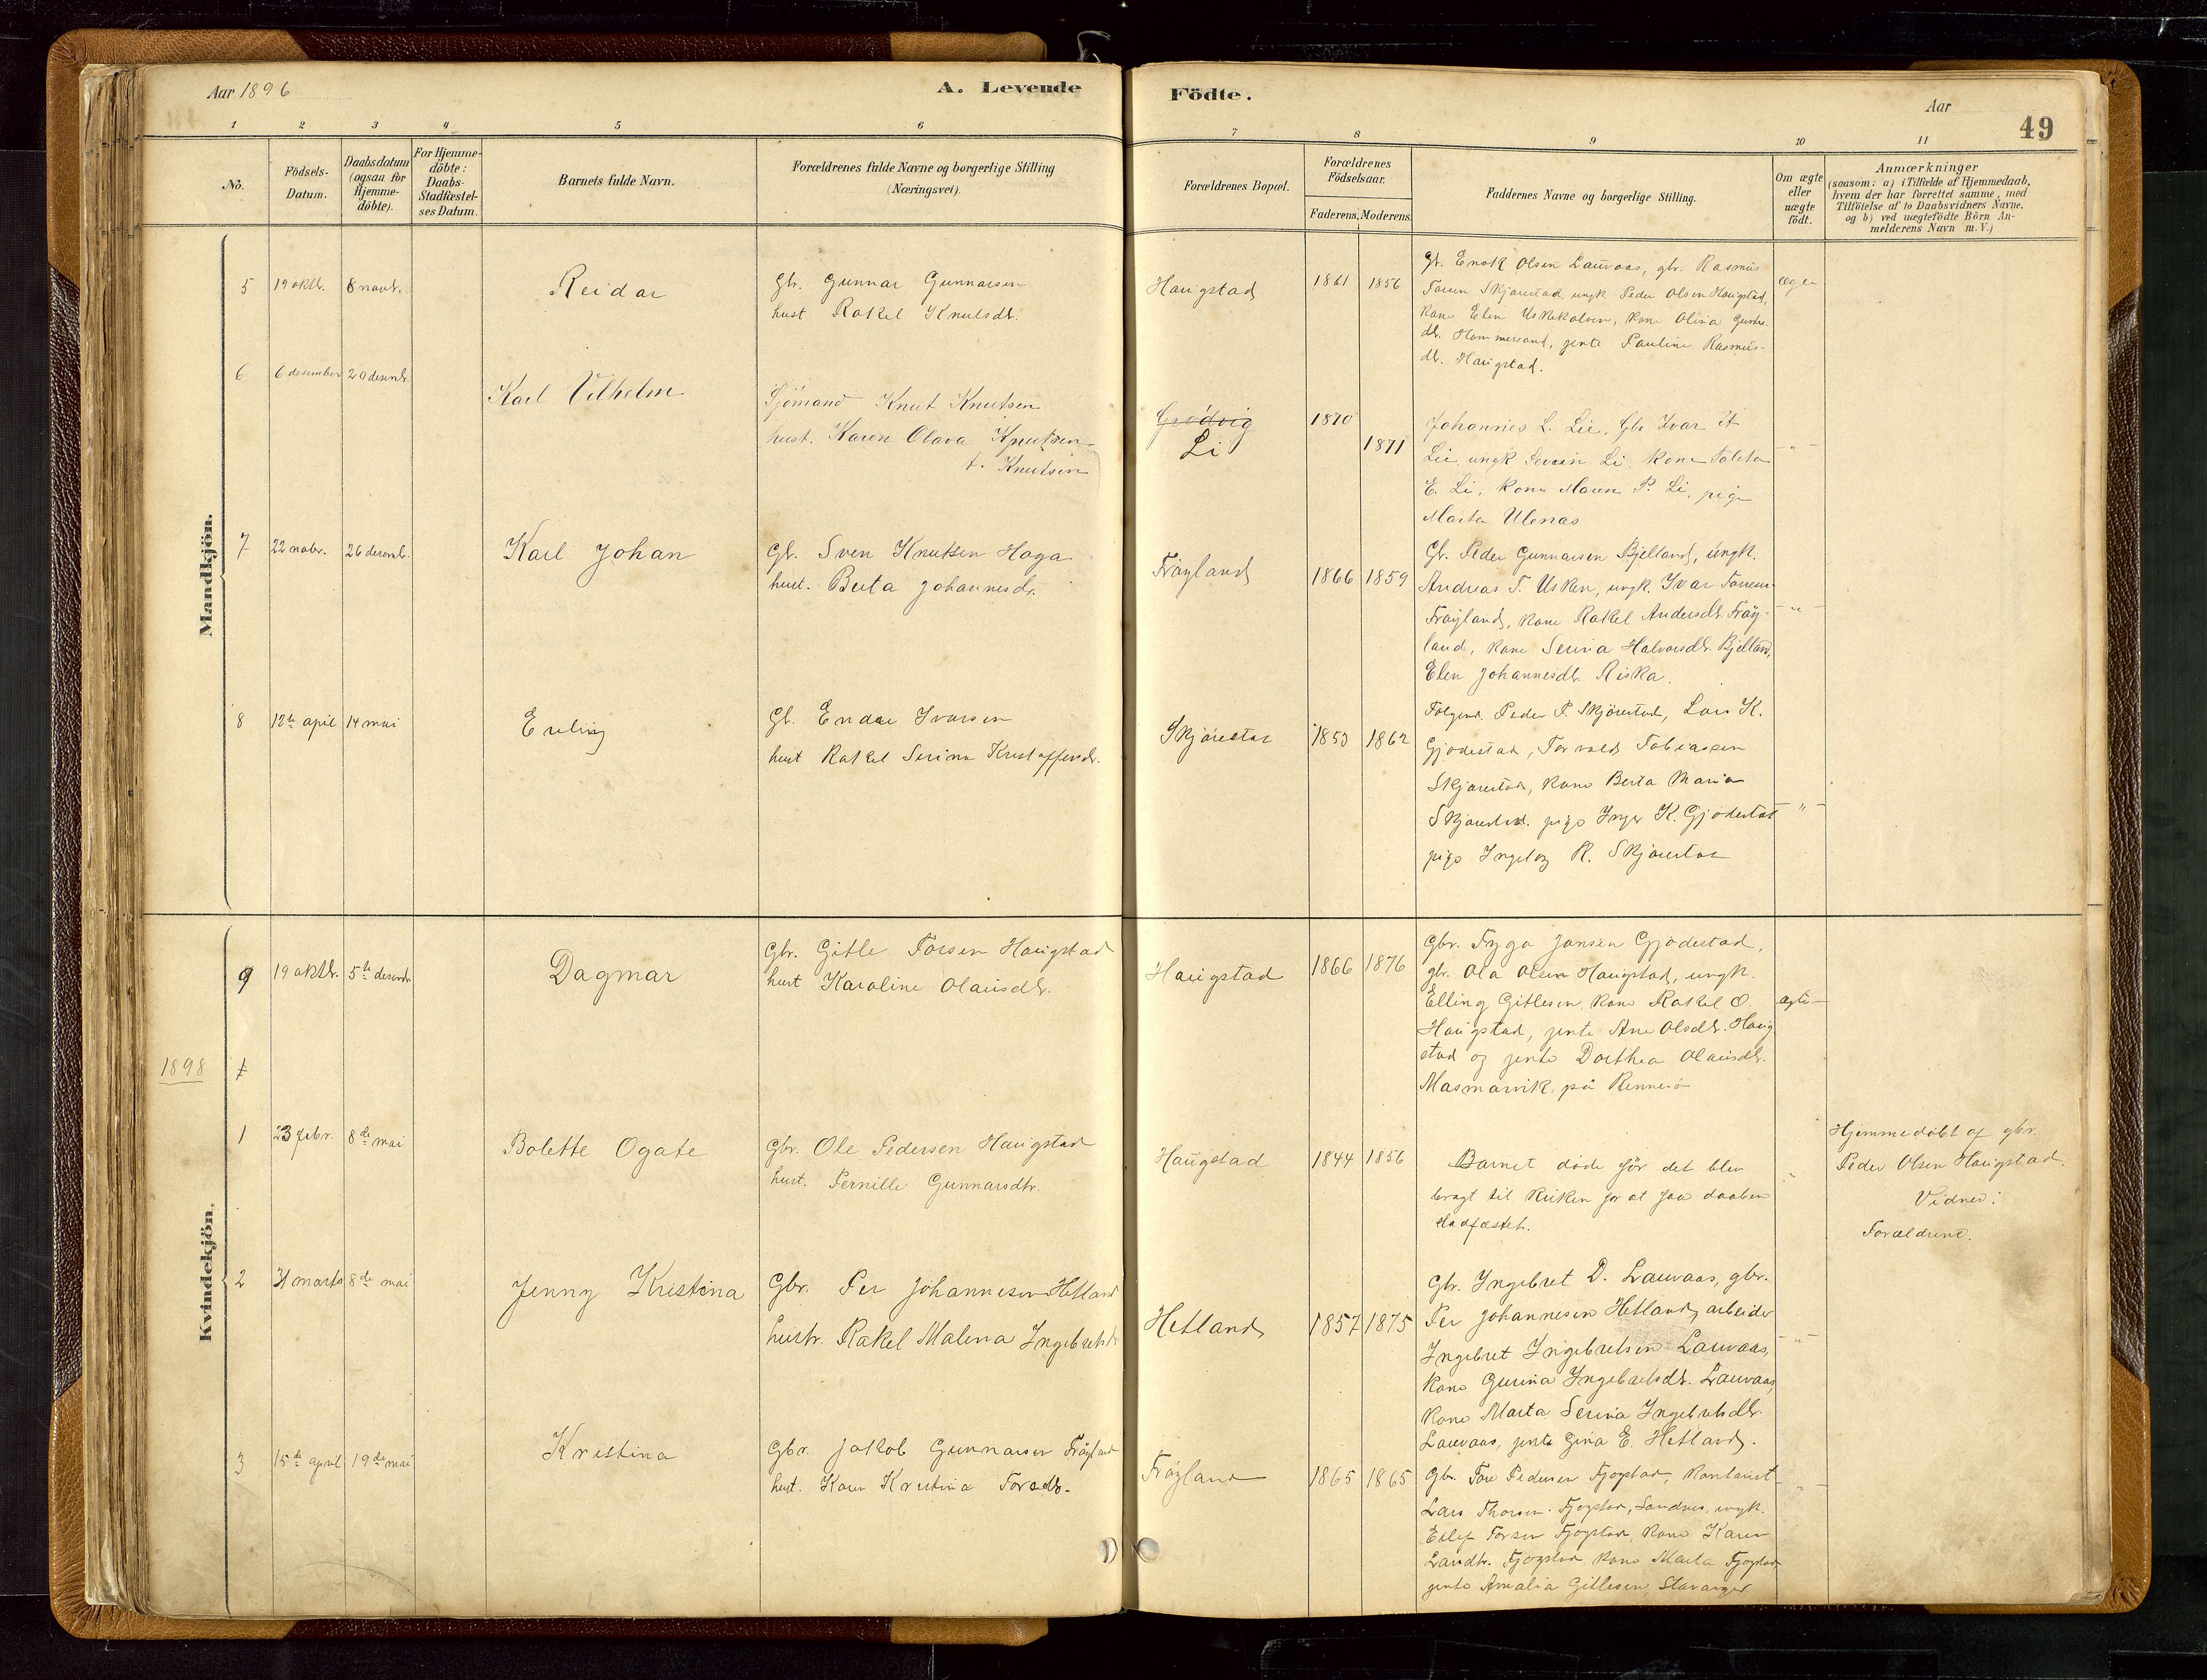 Aar 1896
A. Levende
Födte.
Aar
49
1 2 3 4 5 6 7 8 9 10 11
No.
Födsels-
Datum.
Daabsdatum
(ogsaa for
Hjemme-
döbte).
For Hjemme-
döbte:
Daabs-
Stadfæstel-
ses Datum.
Barnets fulde Navn.
Forældrenes fulde Navne og borgerlige Stilling
(Næringsvei).
Forældrenes Bopæl.
Forældrenes
Födselsaar.
Faderens. Moderens.
Faddernes Navne og borgerlige Stilling.
Om ægte
eller
uægte
födt.
Anmærkninger
(saasom: a) i Tilfælde af Hjemmedaab,
hvem der har forrettet samme, med
Tilföielse af to Daabsvidners Navne,
og b) ved uægtefödte Börn An-
melderens Navn m. V.)
Mandkjön.
5 19 oktb. 8 novb.
Reidar
Gb. Gunnar Gunnarsen
hust Rakel Knutsdt.
Haugstad
1861 1856
Gb. Enok Olsen Lauvaas, gbr. Rasmus
Skjørestad, ungk. Peder Olsen Haugstad,
kone Elen Uskekalven, kone Olina
dt. Hammersant, jente Pauline Rasmus-
dt. Haugstad.
ægte
6 6 desember 20 desemb.
Karl Vilhelm
Sjömand Knut Knutsen
hust. Karen Olava Knutsen
f. Knutsen
Grödvig
Li
1870
1871
Johannes L. Lie, Gb Ivar
Lie, ungk Li, kone
E. Li, kone Maren P. Li, pige
Marta Ulenas
"
7 22 nobr. 26 desemb.
Karl Johan
Gb. Sven Knutsen Hoga
hust. Berta Johannesdr.
Frøyland
1866 1859
Gb. Peder Gunnarsen Bjelland, ungk.
Andreas T. Usken, ungk. Ivar
Frøyland, kone Rakel Andersdt. Frøy-
land, kone Serina Halvorsdt. Bjelland,
Elen Johannesdt. Riska.
"
8 12te april 14 mai
Erling
Gb. Endre Ivarsen
hust Rakel Serina Kristoffersdr.
Skjørestad
1853 1862
Peder P. Skjørestad, Lars K.
Gjødestad, Torvald Tobiasen
Skjørestad, kone Berta Maria
Skjørestad. pige Inger K. Gjødestad
pige Ingeborg R. Skjørestad
"
Kvindekjön.
9 19 oktb. 5te desemb.
Dagmar
Gbr. Gitle Torsen Haugstad
hust Karoline Olausdt.
Haugstad
1866 1876
Gbr. Tryga Jansen Gjødestad,
gb. Ola Olsen Haugstad, ungk.
Elling Gitlesen, kone Rakel O.
Haugstad, jente Ane Olsdt. Haug
stad og jente Dorthea Olausdt.
Masmarvik på Rennesø
ægte
1898
1
1 23 febr. 8de mai
Bolette Ogate
Gbr. Ole Pedersen Haugstad
hust. Pernille Gunnarsdtr.
Haugstad
1844 1856
Barnet døde før det blev
bragt til Kirken for at faa daaben
stadfæstet.
Hjemmedøbt af gbr.
Peder Olsen Haugstad.
Vidner:
Forældrene.
2 31 marts 8de mai
Jenny Kristina
Gbr. Per Johannesen Hetland
hustr. Rakel Malena Ingebretsdt
Hetland
1857 1875
Gbr. Ingebret D. Lauvaas, gbr.
Per Johannesen Hetland, arbeider
Ingebret Ingebretsen Lauvaas,
kone Gurina Ingebretsdt. Lauvaas,
kone Marta Serina Ingebretsdt.
Lauvaas, jente Gina E. Hetland.
"
3 15de april 19de mai
Kristina
Gbr. Jakob Gunnarsen Frøyland
hust. Karen Kristina Toredt.
Frøyland
1865 1865
Gbr. Tore Pedersen Fjogstad,
Lars Thorsen Fjogstad, Sandnes, ungk.
Eilef Torsen Fjogstad, kone Karen
Larsdtr. Fjogstad kone Marta Fjogstad
jente Amalia Gitlesen, Stavanger
"